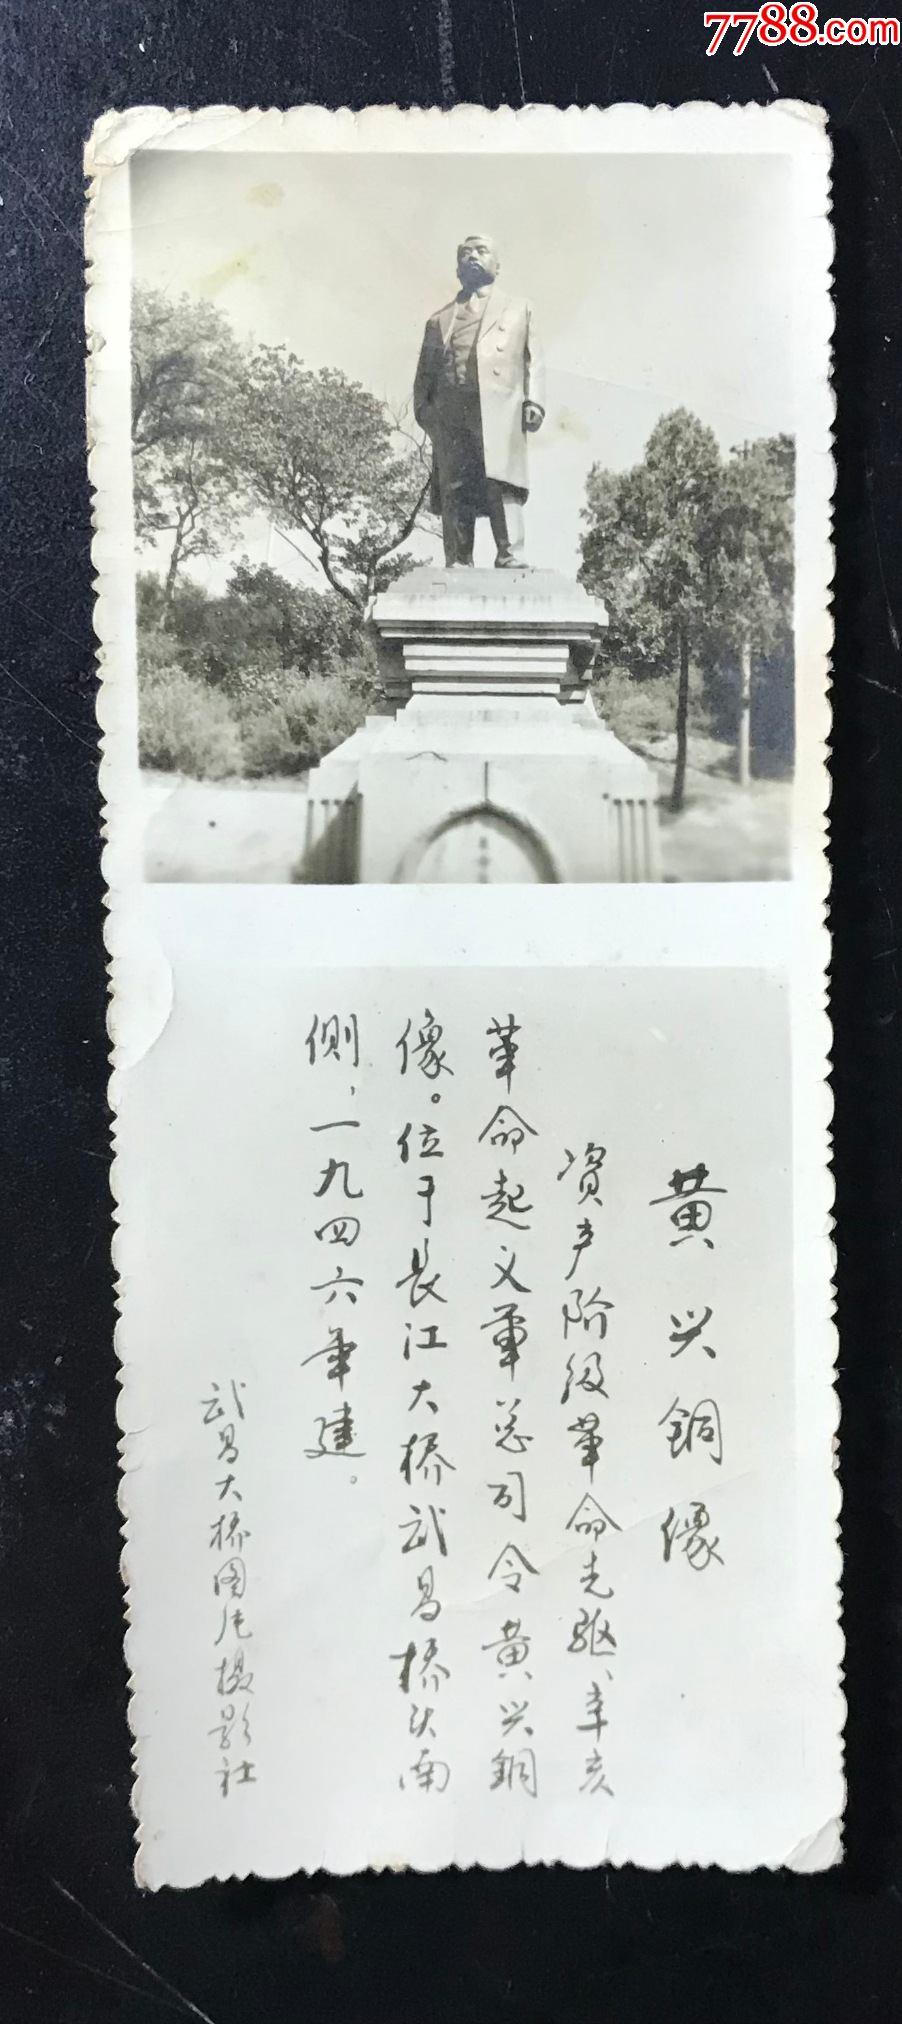 7788.com
黄兴铜像
资产阶级革命先驱、辛亥
革命起义军总司令黄兴铜
像。位于長江大桥武昌桥头南
侧，一九四六年建。
武昌大桥图片摄影社